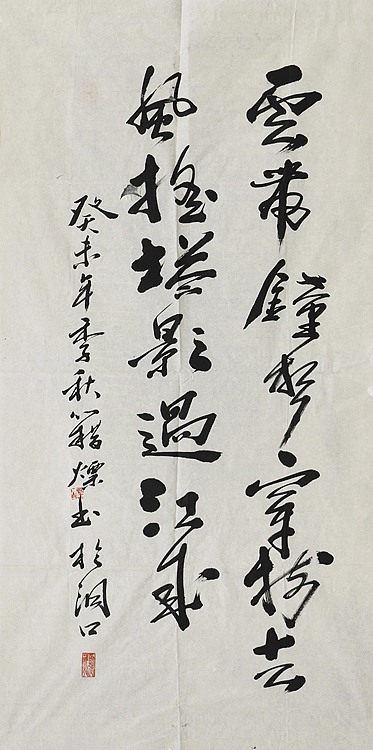 雲帶鐘聲穿樹去
風搖塔影過江來
癸未年季秋籍煙書於洞口